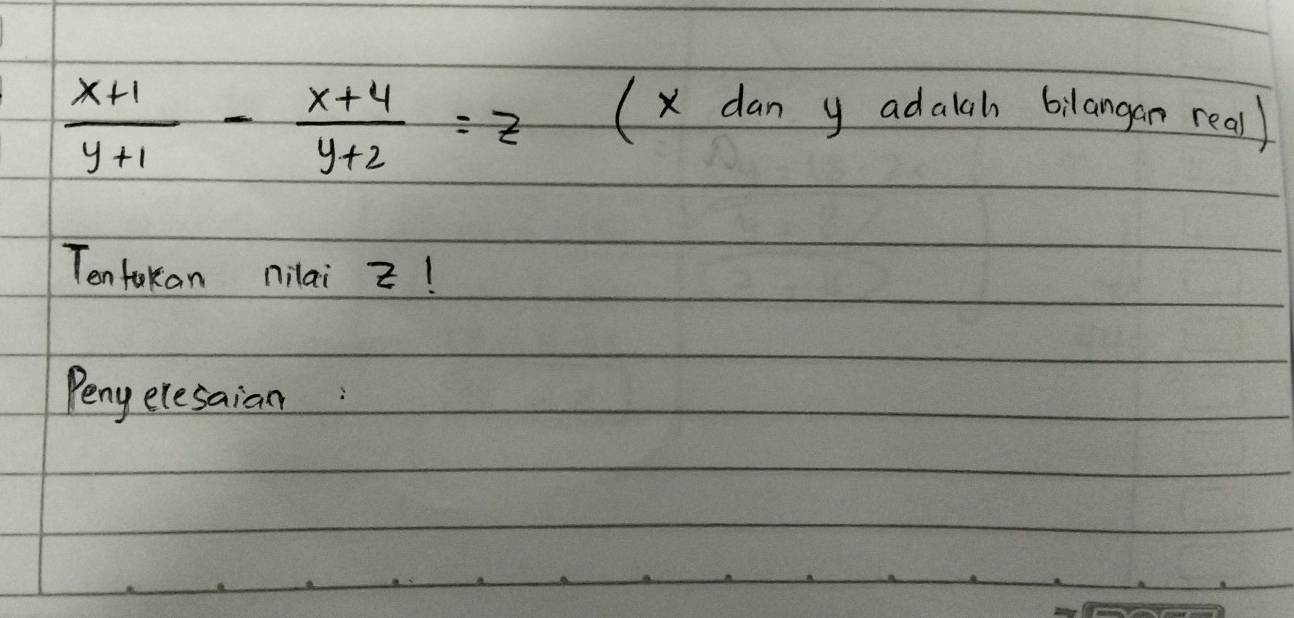 x+1/y+1 - x+4/y+2 = z (x dan y adalah bilangan real)
Tentukan nilai z!
Penyelesaian :